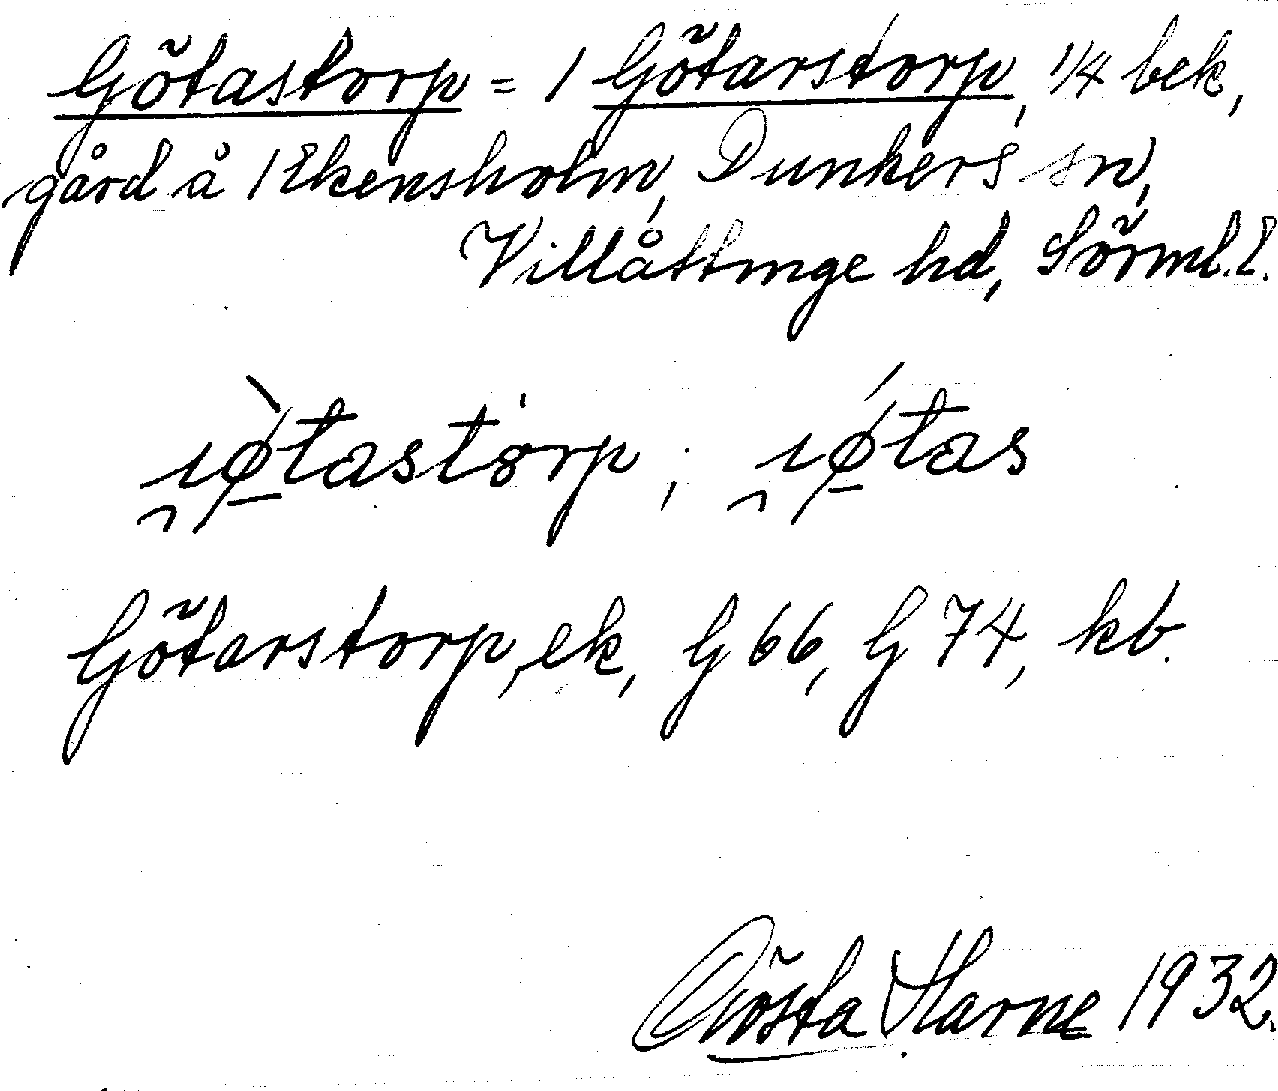 Götastorp = / Götarstorp, 1/4 bek,
gård å / Ekensholm, Dunkers sn,
Villåttinge hd, Sörml. l.
ɩø̀tastȯrp ; ɩǿtas
Götarstorp, ek, G 66, G 74, kb.
Gösta Harne 1932.